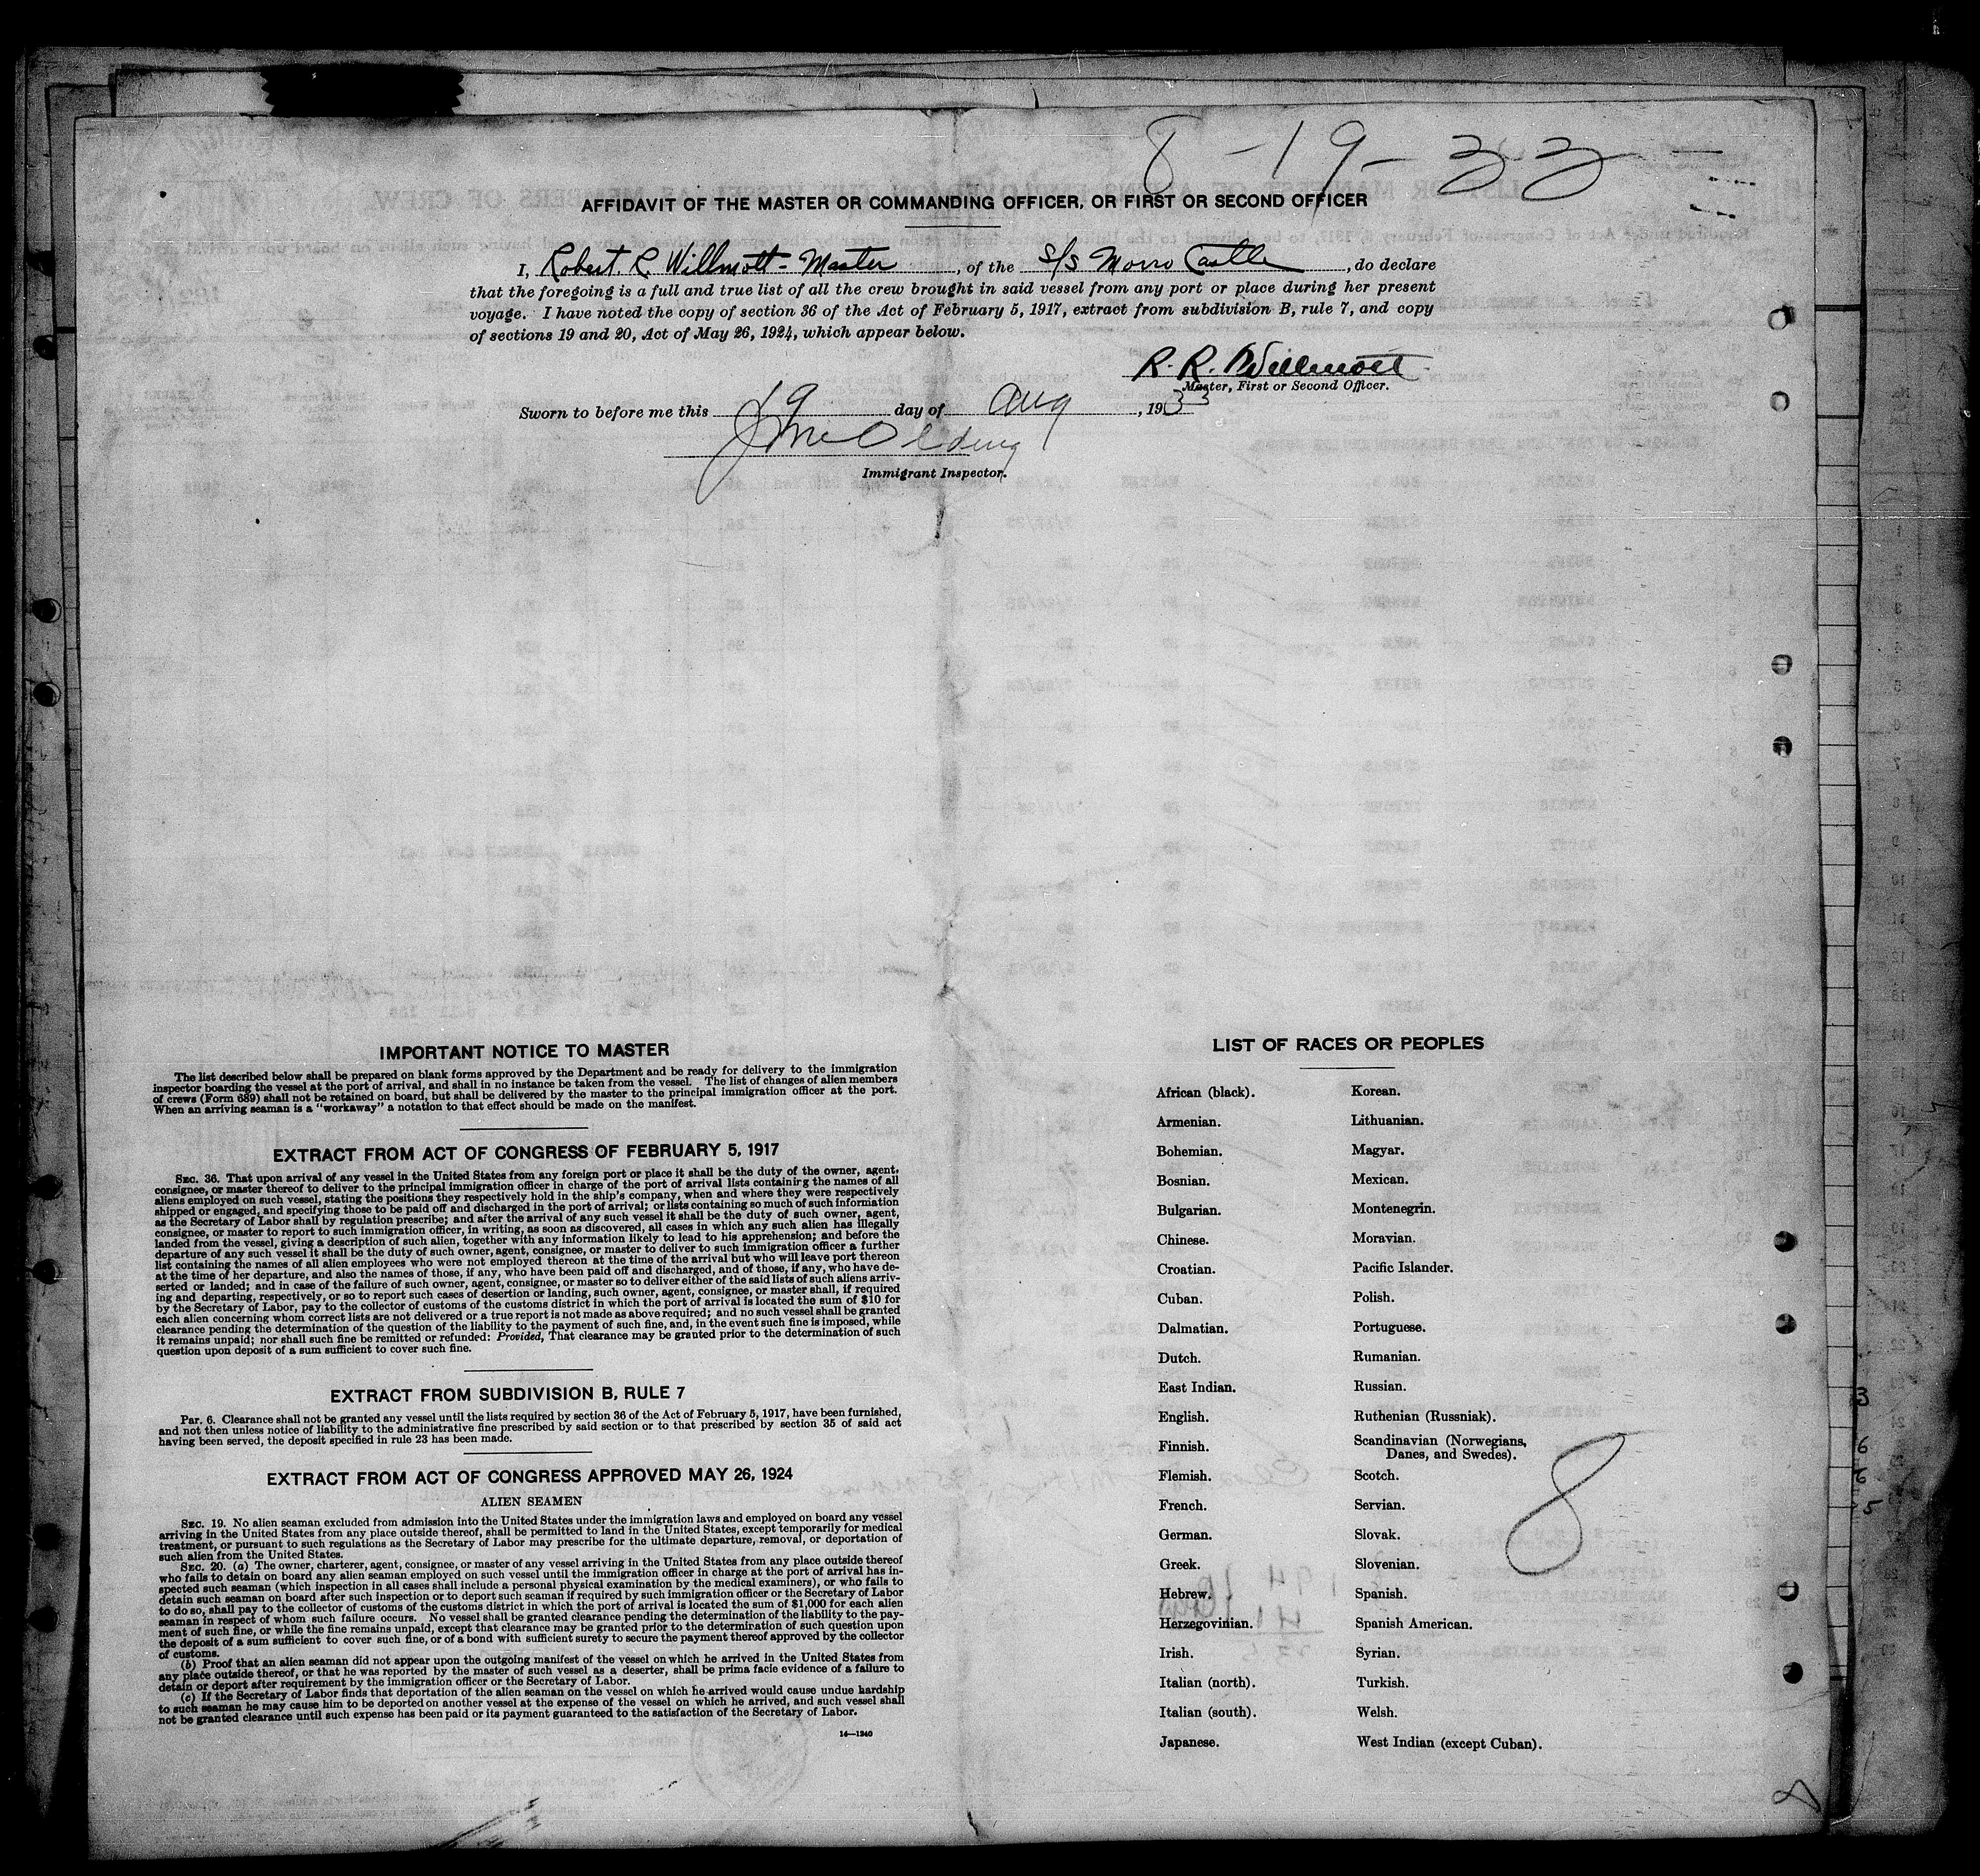 8-19-33
AFFIDAVIT OF THE MASTER OR COMMANDING OFFICER, OR FIRST OR SECOND OFFICER
I, Robert R. Willmott - Master, of the S/S Morro Castle, do declare
that the foregoing is a full and true list of all the crew brought in said vessel from any port or place during her present
voyage. I have noted the copy of section 36 of the Act of February 5, 1917, extract from subdivision B, rule 7, and copy
of sections 19 and 20, Act of May 26, 1924, which appear below.
R. R. Willmott
Master, First or Second Officer.
Sworn to before me this 19 day of Aug, 1933
Immigrant Inspector.
IMPORTANT NOTICE TO MASTER
The list described below shall be prepared on blank forms approved by the Department and be ready for delivery to the immigration
inspector boarding the vessel at the port of arrival, and shall in no instance be taken from the vessel. The list of changes of alien members
of crews (Form 689) shall not be retained on board, but shall be delivered by the master to the principal immigration officer at the port.
When an arriving seaman is a "workaway" a notation to that effect should be made on the manifest.
EXTRACT FROM ACT OF CONGRESS OF FEBRUARY 5, 1917
SEC. 36. That upon arrival of any vessel in the United States from any foreign port or place it shall be the duty of the owner, agent,
consignee, or master thereof to deliver to the principal immigration officer in charge of the port of arrival lists containing the names of all
aliens employed on such vessel, stating the positions they respectively hold in the ship's company, when and where they were respectively
shipped or engaged, and specifying those to be paid off and discharged in the port of arrival; or lists containing so much of such information
as the Secretary of Labor shall by regulation prescribe; and after the arrival of any such vessel it shall be the duty of such owner, agent,
consignee, or master to report to such immigration officer, in writing, as soon as discovered, all cases in which any such alien has illegally
landed from the vessel, giving a description of such alien, together with any information likely to lead to his apprehension; and before the
departure of any such vessel it shall be the duty of such owner, agent, consignee, or master to deliver to such immigration officer a further
list containing the names of all alien employees who were not employed thereon at the time of the arrival but who will leave port thereon
at the time of her departure, and also the names of those, if any, who have been paid off and discharged, and of those, if any, who have de-
serted or landed; and in case of the failure of such owner, agent, consignee, or master so to deliver either of the said lists of such aliens arriv-
ing and departing, respectively, or so to report such cases of desertion or landing, such owner, agent, consignee, or master shall, if required
by the Secretary of Labor, pay to the collector of customs of the customs district in which the port of arrival is located the sum of $10 for
each alien concerning whom correct lists are not delivered or a true report is not made as above required; and no such vessel shall be granted
clearance pending the determination of the question of the liability to the payment of such fine, and, in the event such fine is imposed, while
it remains unpaid; nor shall such fine be remitted or refunded: Provided, That clearance may be granted prior to the determination of such
question upon deposit of a sum sufficient to cover such fine.
EXTRACT FROM SUBDIVISION B, RULE 7
Par. 6. Clearance shall not be granted any vessel until the lists required by section 36 of the Act of February 5, 1917, have been furnished,
and not then unless notice of liability to the administrative fine prescribed by said section or to that prescribed by section 35 of said act
having been served, the deposit specified in rule 23 has been made.
EXTRACT FROM ACT OF CONGRESS APPROVED MAY 26, 1924
ALIEN SEAMEN
SEC. 19. No alien seaman excluded from admission into the United States under the immigration laws and employed on board any vessel
arriving in the United States from any place outside thereof, shall be permitted to land in the United States, except temporarily for medical
treatment, or pursuant to such regulations as the Secretary of Labor may prescribe for the ultimate departure, removal, or deportation of
such alien from the United States.
SEC. 20. (a) The owner, charterer, agent, consignee, or master of any vessel arriving in the United States from any place outside thereof
who fails to detain on board any alien seaman employed on such vessel until the immigration officer in charge at the port of arrival has in-
spected such seaman (which inspection in all cases shall include a personal physical examination by the medical examiners), or who fails to
detain such seaman on board after such inspection or to deport such seaman if required by such immigration officer or the Secretary of Labor
to do so, shall pay to the collector of customs of the customs district in which the port of arrival is located the sum of $1,000 for each alien
seaman in respect of whom such failure occurs. No vessel shall be granted clearance pending the determination of the liability to the pay-
ment of such fine, or while the fine remains unpaid, except that clearance may be granted prior to the determination of such question upon
the deposit of a sum sufficient to cover such fine, or of a bond with sufficient surety to secure the payment thereof approved by the collector
of customs.
(b) Proof that an alien seaman did not appear upon the outgoing manifest of the vessel on which he arrived in the United States from
any place outside thereof, or that he was reported by the master of such vessel as a deserter, shall be prima facie evidence of a failure to
detain or deport after requirement by the immigration officer or the Secretary of Labor.
(c) If the Secretary of Labor finds that deportation of the alien seaman on the vessel on which he arrived would cause undue hardship
to such seaman he may cause him to be deported on another vessel at the expense of the vessel on which he arrived, and such vessel shall
not be granted clearance until such expense has been paid or its payment guaranteed to the satisfaction of the Secretary of Labor.
14-1240
LIST OF RACES OR PEOPLES
African (black). Korean.
Armenian. Lithuanian.
Bohemian. Magyar.
Bosnian. Mexican.
Bulgarian. Montenegrin.
Chinese. Moravian.
Croatian. Pacific Islander.
Cuban. Polish.
Dalmatian. Portuguese.
Dutch. Rumanian.
East Indian. Russian.
English. Ruthenian (Russniak).
Finnish. Scandinavian (Norwegians,
Danes, and Swedes).
Flemish. Scotch.
French. Servian.
German. Slovak.
Greek. Slovenian.
Hebrew. Spanish.
Herzegovinian. Spanish American.
Irish. Syrian.
Italian (north). Turkish.
Italian (south). Welsh.
Japanese. West Indian (except Cuban).
8